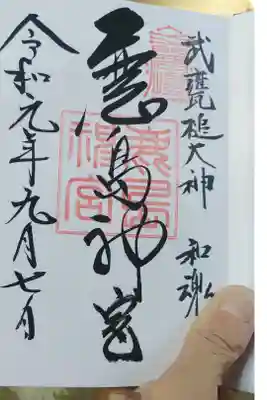 武甕槌大神 和魂
鹿島神宮
鹿島神宮
令和元年九月七日